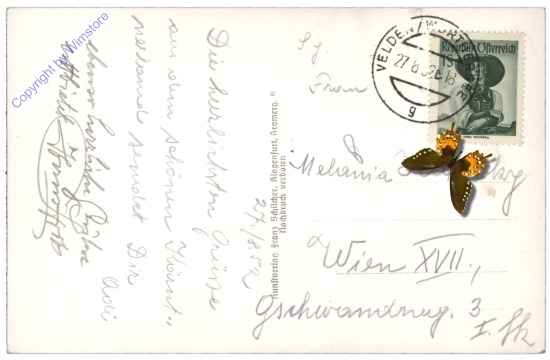 Copyright by Wimstore
Die herzlichsten Grüsse
aus dem schönen Kärnt-
nerland sendet Dir
Adi
ebenso herzliche Grüße
27./8.52
Kunstverlag Franz Schilcher, Klagenfurt,
Nachdruck verboten
VELDEN WÖRTHERSEE
27.8.52
g
Republik Österreich
Frau
Melania
Wien XVII.,
Gschwandnug. 3
I. Stk